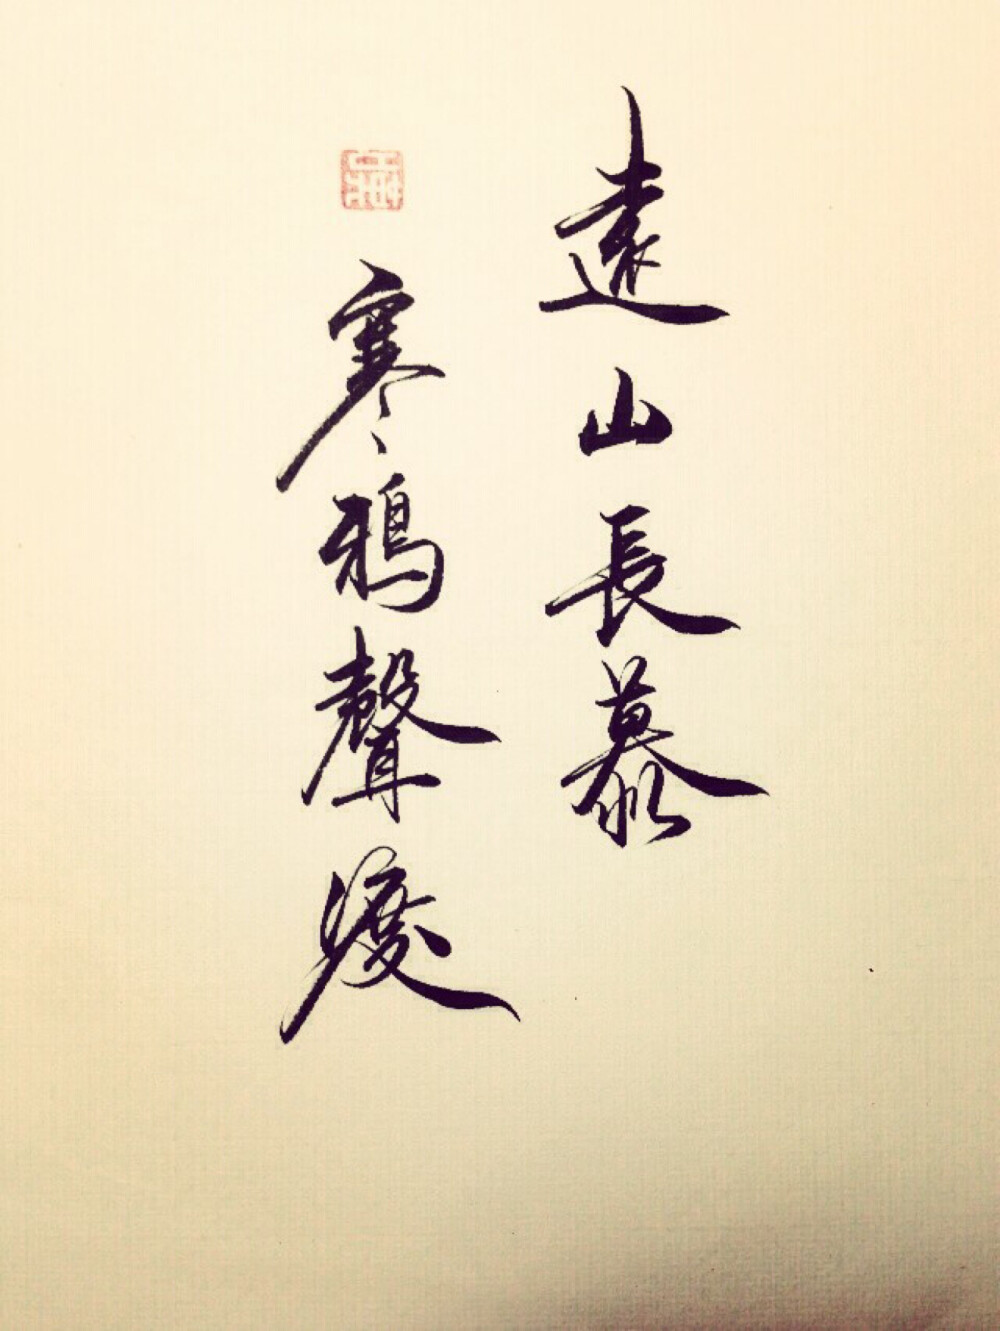 遠山長慕
寒鴉聲